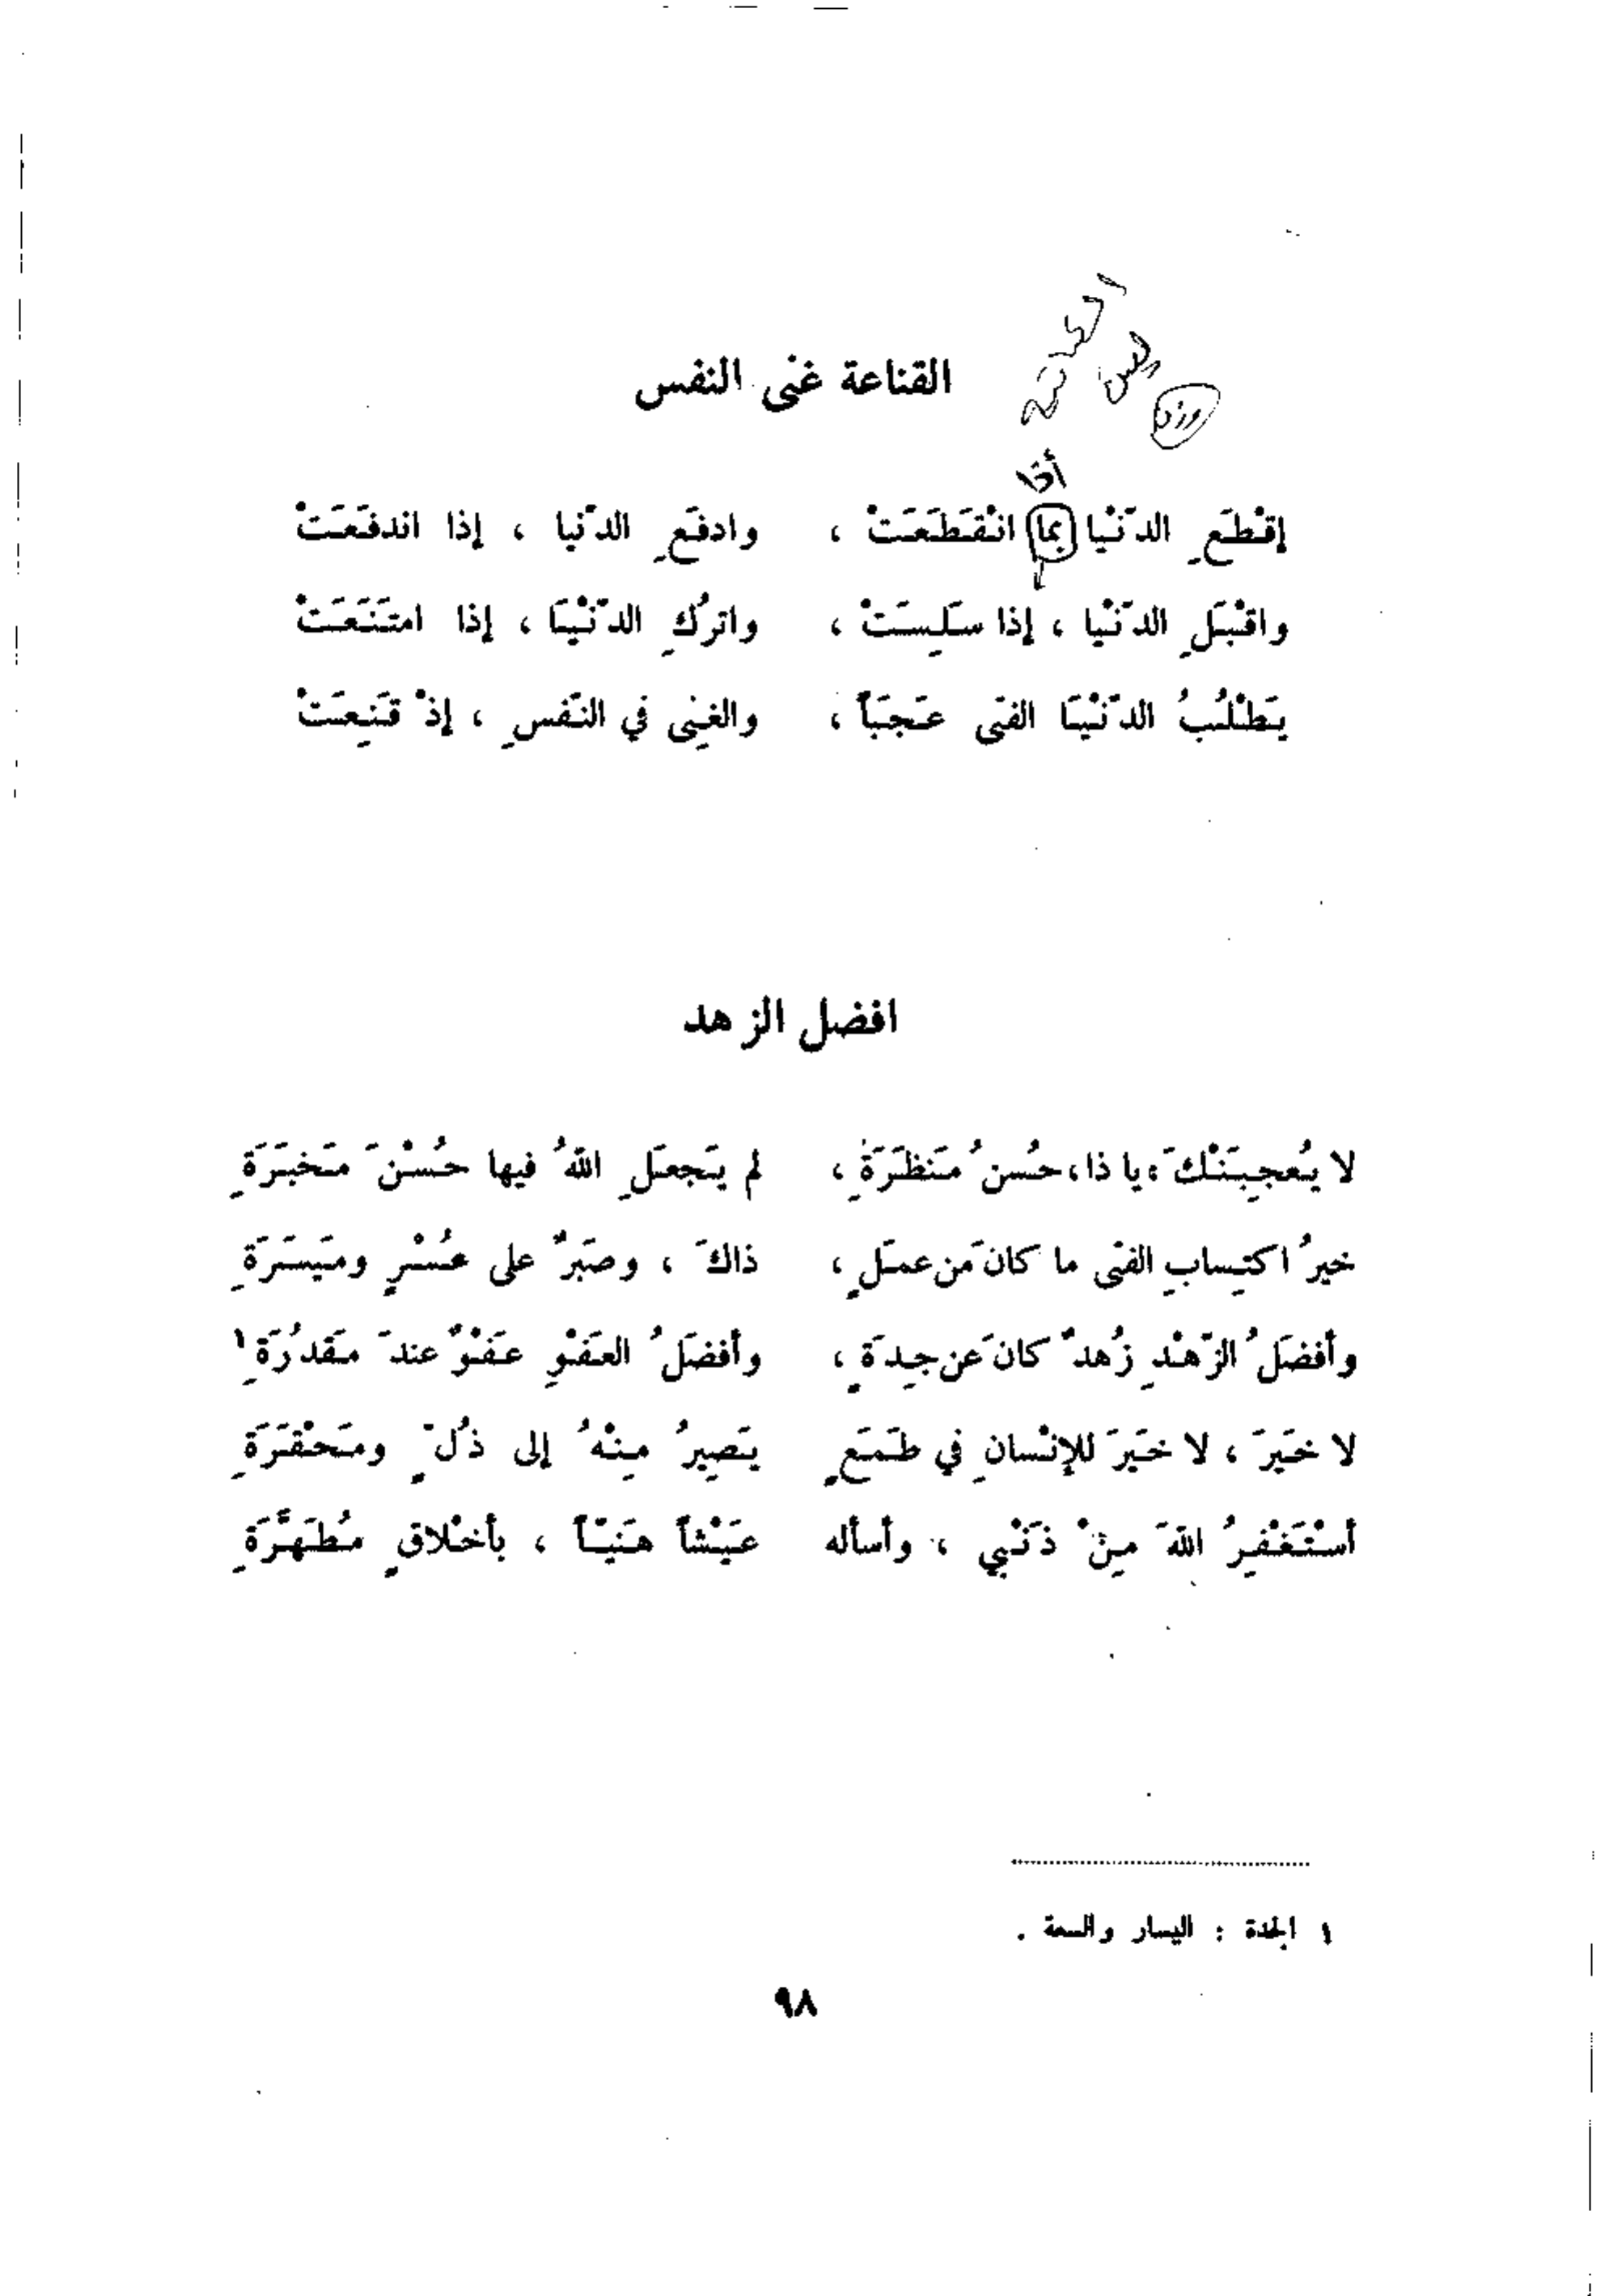 القناعة غنى النفس
إقْطَعِ الدّنْيَا بما انْقَطَعَتْ ، وادفَعِ الدّنيا ، إذا اندفَعَتْ
واقْبَلِ الدّنْيا ، إذا سَلِسَتْ ، واترُكِ الدّنْيَا ، إذا امتَنَعَتْ
يَطْلُبُ الدّنْيَا الفتى عَجَبَاً ، والغِنى في النّفسِ ، إذْ قَنِعَتْ
افضل الزهد
لا يُعجِبَنْكَ ، يا ذا ، حُسنُ مَنظَرَةٍ ، لم يَجعَلِ اللهُ فيها حُسْنَ مَخبَرَةِ
خيرُ اكتِسابِ الفتى ما كانَ من عمَلٍ ، ذاكَ ، وصَبرٌ على عُسْرٍ ومَيسَرَةِ
وأفضَلُ الزّهْدِ زُهدٌ كانَ عن جِدةٍ ، وأفضَلُ العَفْوِ عَفْوٌ عندَ مَقدُرَةِ١
لا خَيرَ ، لا خَيرَ للإنْسانِ في طَمَعٍ يَصِيرُ مِنْهُ إلى ذُلٍّ ومَحْقَرَةِ
أسْتَغْفِرُ اللهَ مِنْ ذَنْبي ، وأسأله عَيْشاً هَنيّاً ، بأخْلاقٍ مُطَهَّرَةِ
١ الجدة : اليسار والسعة .
٩٨